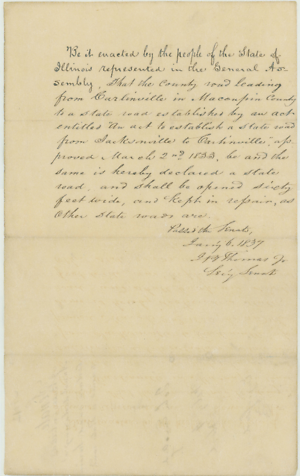 Be it enacted by the people of the State of
Illinois represented in the General As-
sembly, That the County road leading
from Carlinville in Macoupin County
to a state road established by an act
entitled An act to establish a state road
from Jacksonville to Carlinville, ap-
proved March 2nd 1833, be and the
same is hereby declared a state
road, and shall be opened sixty
feet wide, and kept in repair, as
other state roads are.
Passed the Senate,
Jany 6. 1837
Thomas Jr
Secy Senate